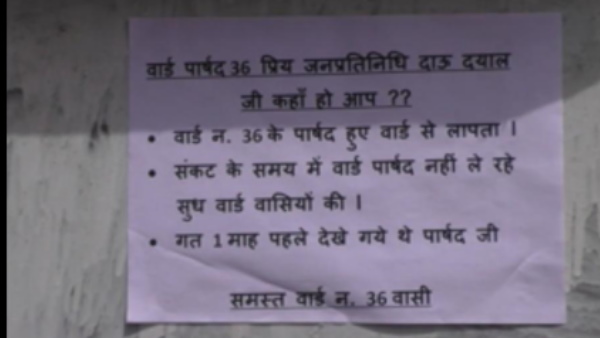 वार्ड पार्षद 36 प्रिय जनप्रतिनिधि दाऊ दयाल
जी कहाँ हो आप ??
• वार्ड न. 36 के पार्षद हुए वार्ड से लापता ।
• संकट के समय में वार्ड पार्षद नहीं ले रहे
सुध वार्ड वासियों की ।
• गत 1 माह पहले देखे गये थे पार्षद जी
समस्त वार्ड न. 36 वासी